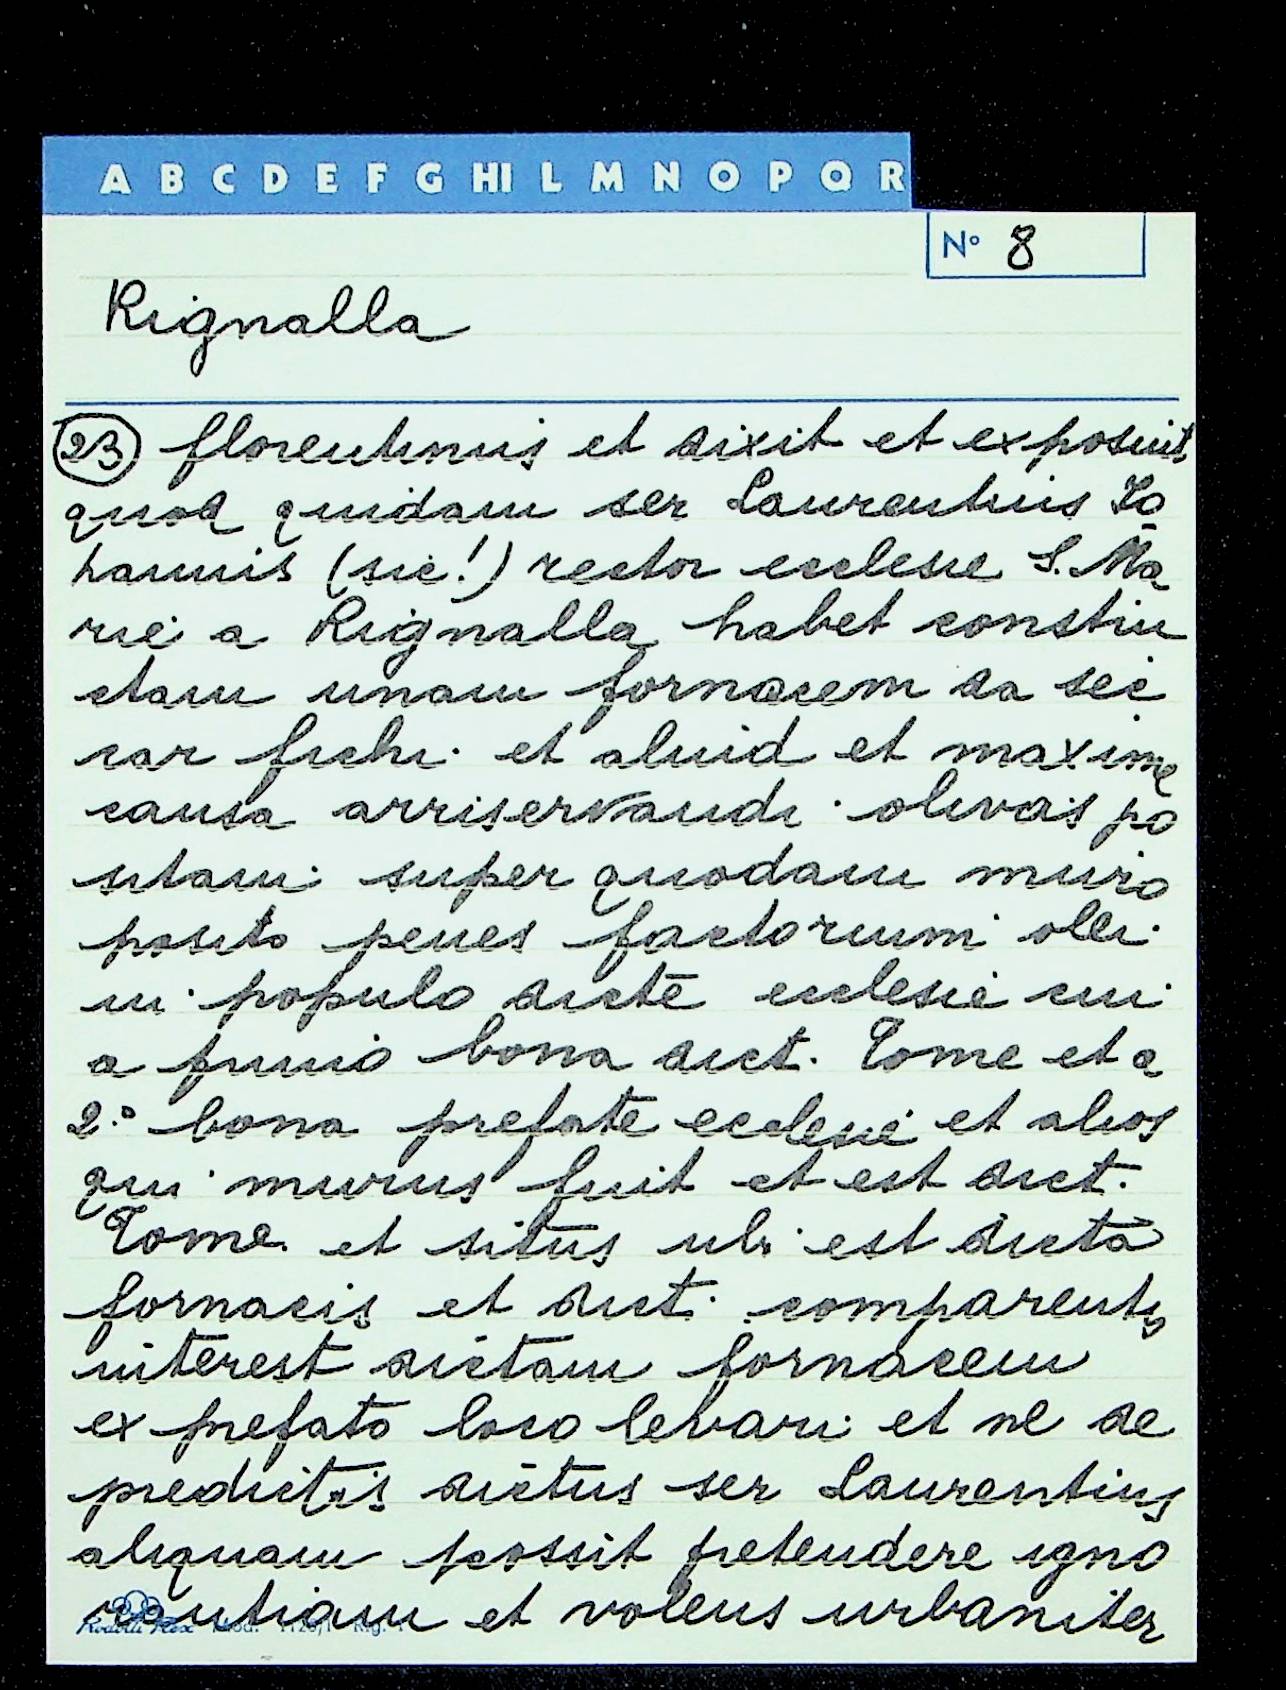 A B C D E F G HI L M N O P Q R
Nº 8
Rignalla
23 florentinus et dixit et exposuit
quod quidam ser Laurentius Jo
hannis (sic!) rector ecclesie S. Ma
rie a Rignalla habet constru
ctam unam fornacem da sec
car fichi et aluid et maxime
causa arriservandi olivas po
sitam super quodam muro
posito penes factorium olei
in populo dicte ecclesie cui
a primo bona dict. Tome et a
2.º bona prefate ecclesie et alios
qui murus fuit et est dict.
Tome et situs ubi est dicta
fornacis et dict. comparentis
interest dictam fornacem
ex prefato loco levari et ne de
predictis dictus ser Laurentius
aliquam possit pretendere igno
rantiam et volens urbaniter